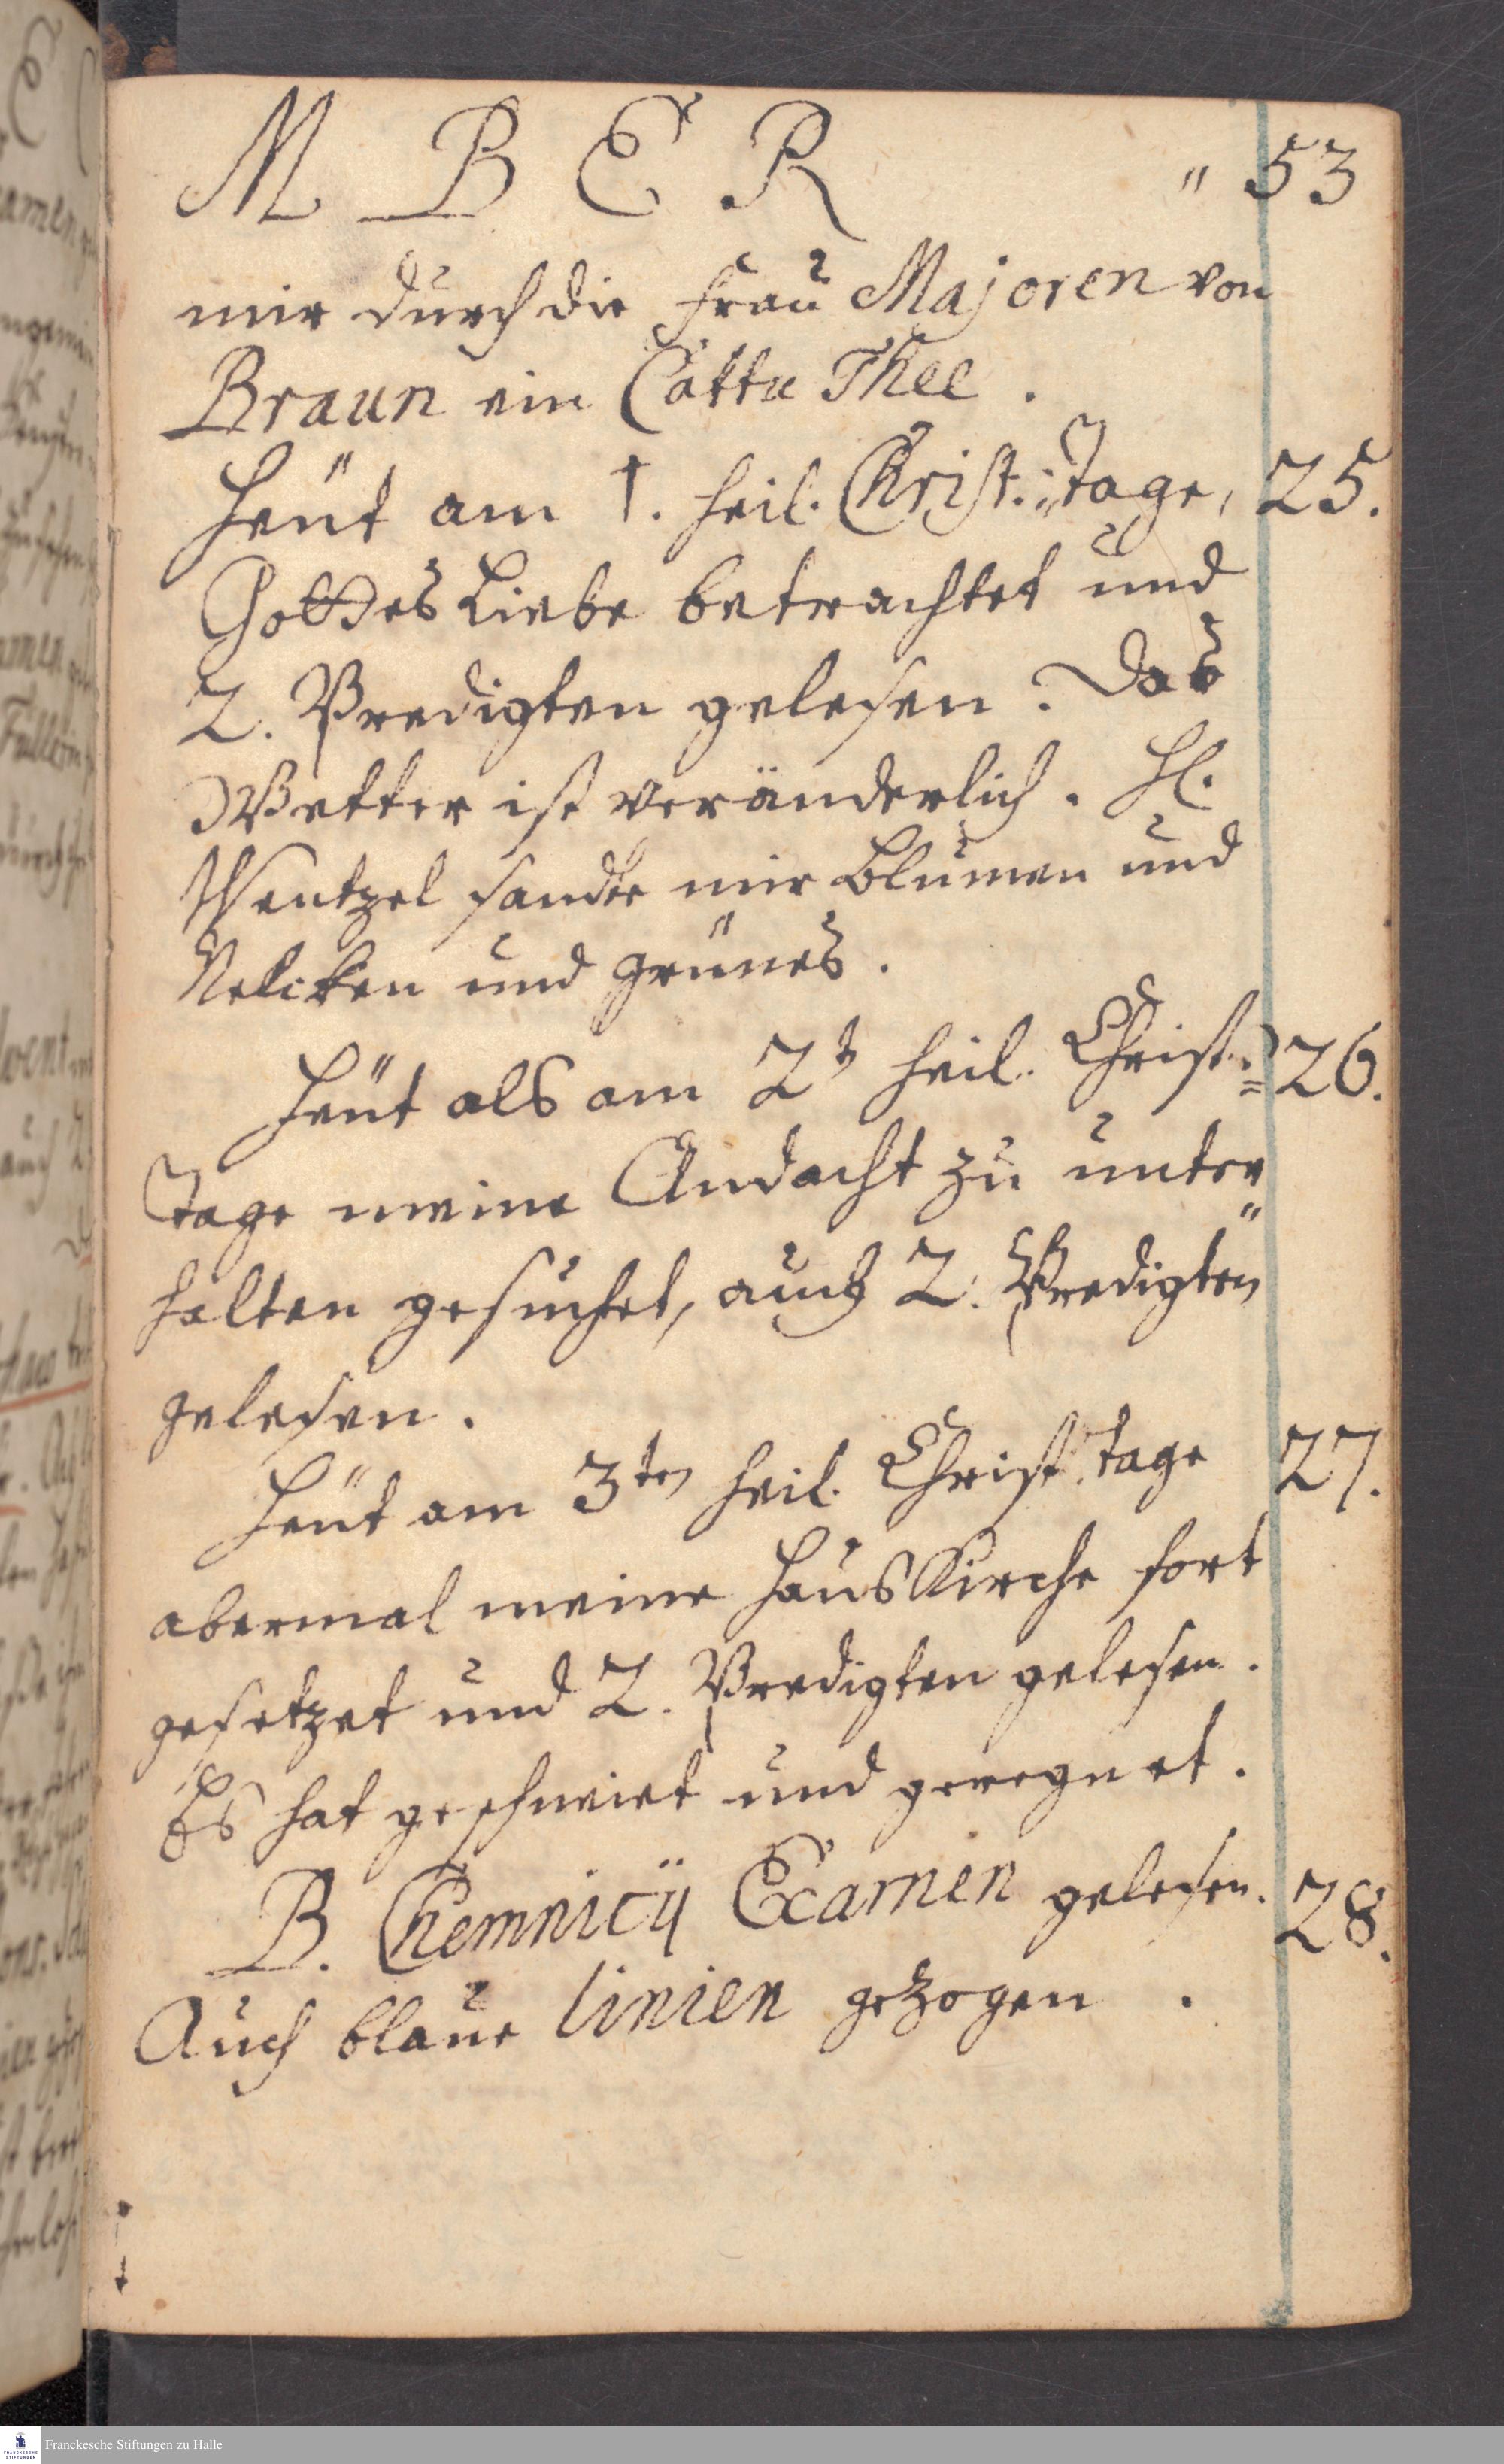 M B E R " 53
mir durch die Frau Majoren von
Braun ein Cattu Thee.
Heüt am 1. heil. Christ.=Tage, 25.
Gottes Liebe betrachtet und
2. Predigten gelesen. Das
Wetter ist veränderlich. H.
Wentzel sandte mir Blumen und
Nelcken und grünes.
Heüt als am 2t heil. Christ= 26.
Tage meine Andacht zu unter"
halten gesuchet, auch 2. Predigten
gelesen.
Heüt am 3ten heil. Christ.tage 27.
abermal meine HausKirche fort
gesetzet und 2. Predigten gelesen.
Es hat geschneiet und geregnet.
B. Chemnicii Examen gelesen. 28.
Auch blaue linien gezogen.
Franckesche Stiftungen zu Halle